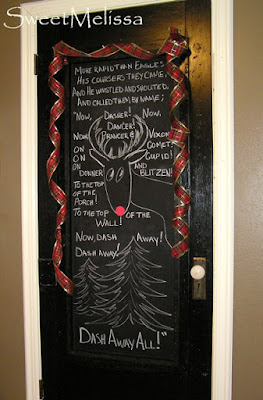 SweetMelissa
More rapid than Eagles
His coursers they came,
And He whistled and shouted,
And called them by name;
"Now, Dasher! Now,
Dancer!
Now, Prancer & Vixon
On Comet!
On Cupid!
On Donner and Blitzen!
To the top
of the
Porch!
To the top of the
Wall!
Now, Dash Away!
Dash away!
Dash Away All!"